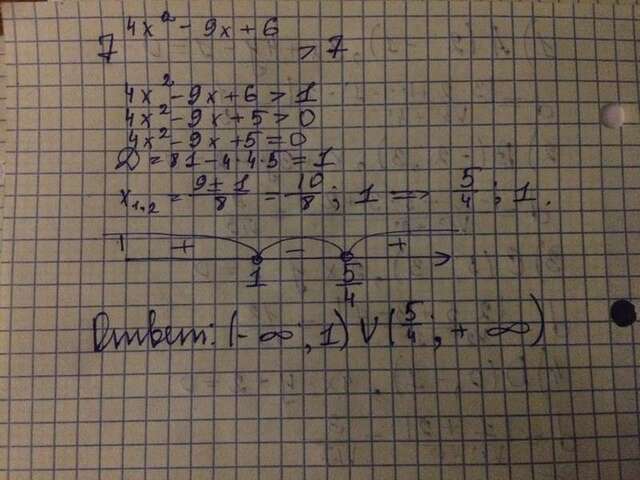 7^(4x² - 9x + 6) > 7
4x² - 9x + 6 > 1
4x² - 9x + 5 > 0
4x² - 9x + 5 = 0
D = 81 - 4·4·5 = 1
x₁,₂ = (9 ± 1)/8 = 10/8 ; 1 => 5/4 ; 1.
+ - +
1 5/4
Ответ: (-∞; 1) ∪ (5/4; +∞)